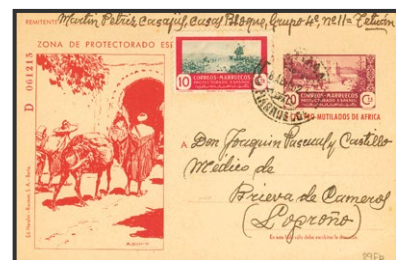 REMITENTE Martin Petriz Casajús, Casas Bloque, Grupo 4º nº 11= Tetuán
ZONA DE PROTECTORADO ESP
D 061215
10
CORREOS-MARRUECOS
PROTECTORADO ESPAÑOL
CORREOS-MARRUECOS
PROTECTORADO ESPAÑOL
20 Cts
MUTILADOS DE AFRICA
A Don Joaquin Pascual y Castillo
Médico de
Brieva de Cameros
(Logroño)
En este lado sólo debe escribirse la dirección